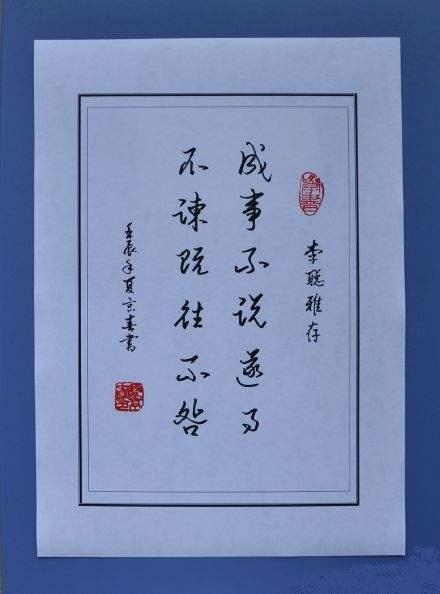 李聪雅存
成事不说遂事
不谏既往不咎
壬辰年夏京喜書